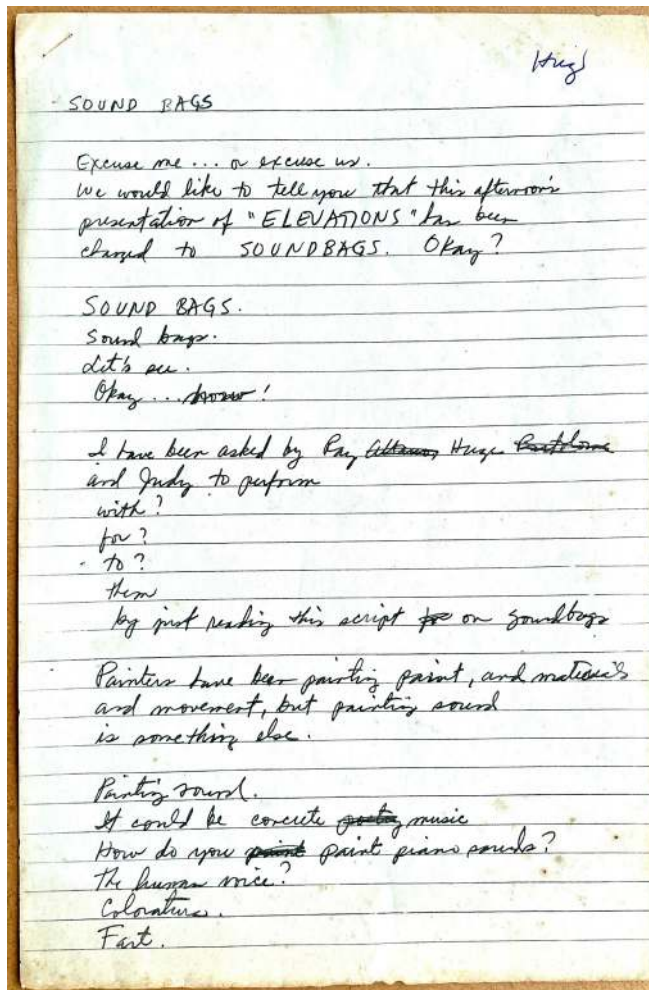 Hugo
SOUND BAGS
Excuse me ... or excuse us.
We would like to tell you that this afternoon's
presentation of "ELEVATIONS" has been
changed to SOUNDBAGS. Okay?
SOUND BAGS.
Sound bags.
Let's see.
Okay ... !
I have been asked by Ray Hugo
and Judy to perform
with?
for?
to?
them
by just reading this script on soundbags
Painters have been painting paint, and materials
and movement, but painting sound
is something else.
Painting sound.
It could be concrete poetry music
How do you paint paint piano sounds?
The human voice?
Coloratura.
Fart.